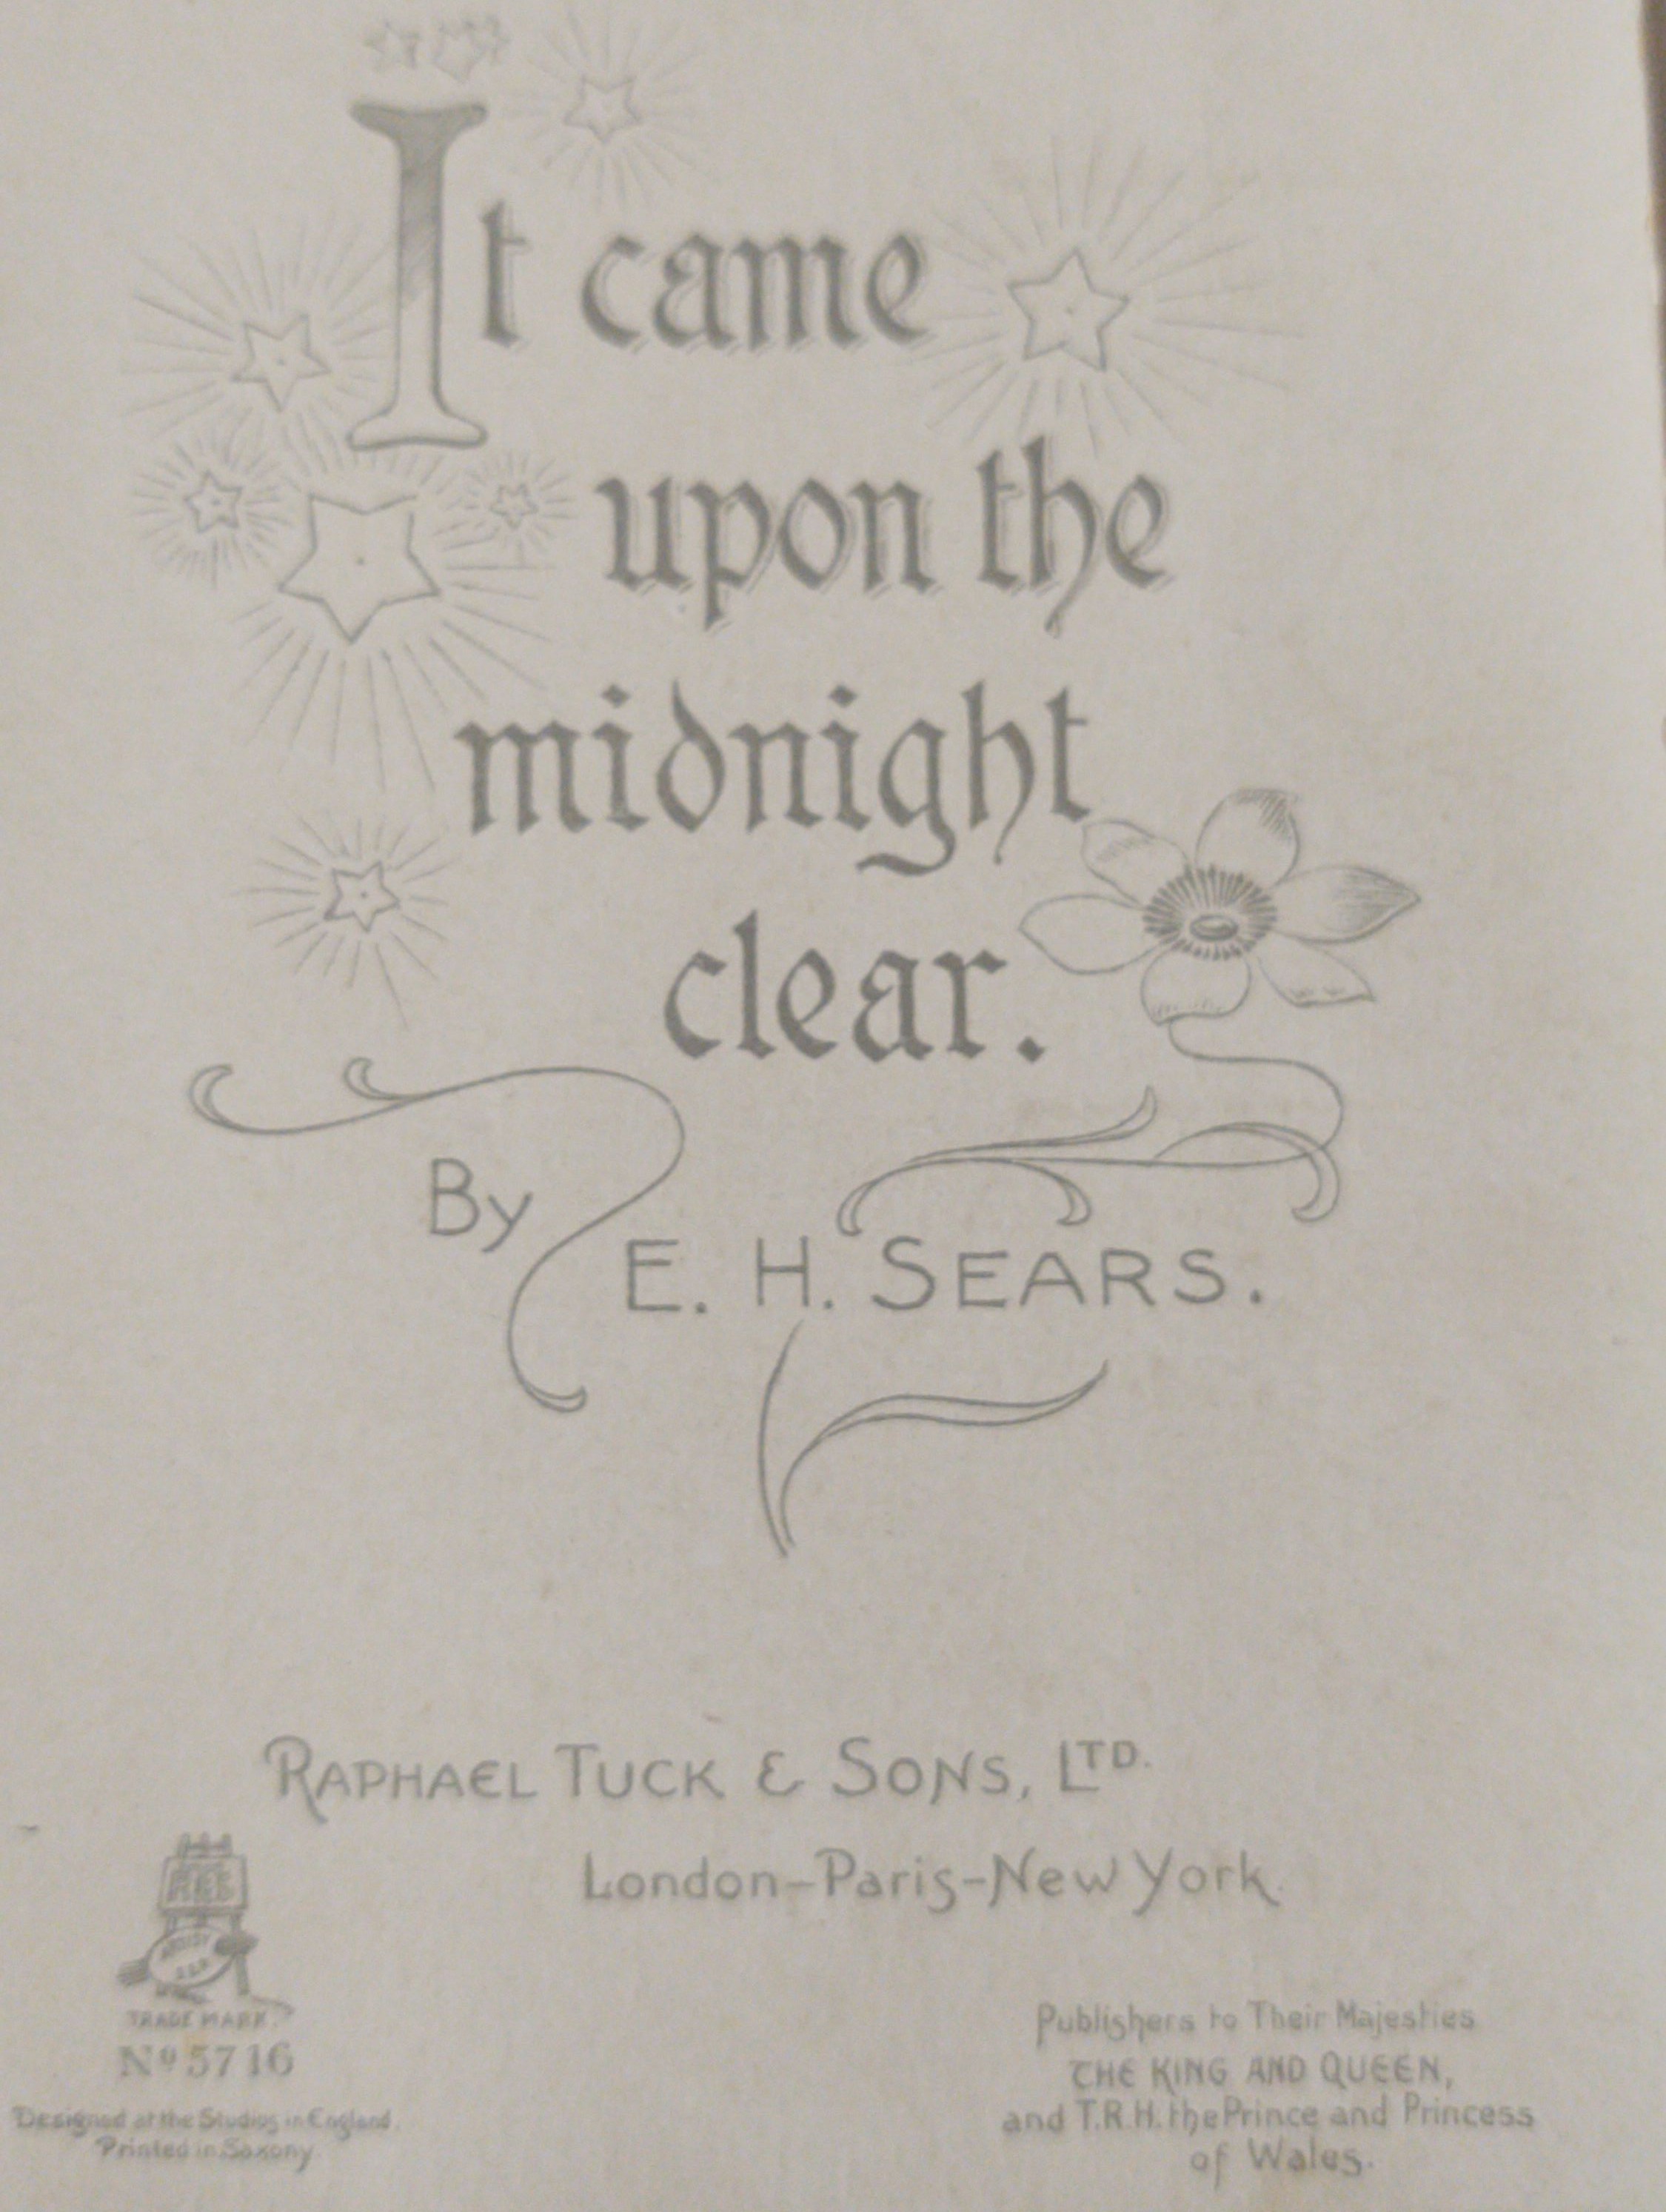 It came
upon the
midnight
clear.
By
E. H. SEARS.
RAPHAEL TUCK & SONS, LTD.
London-Paris-New York.
TRADE MARK.
Nº 5716
Designed at the Studios in England.
Printed in Saxony.
Publishers to Their Majesties
THE KING AND QUEEN,
and T.R.H. the Prince and Princess
of Wales.